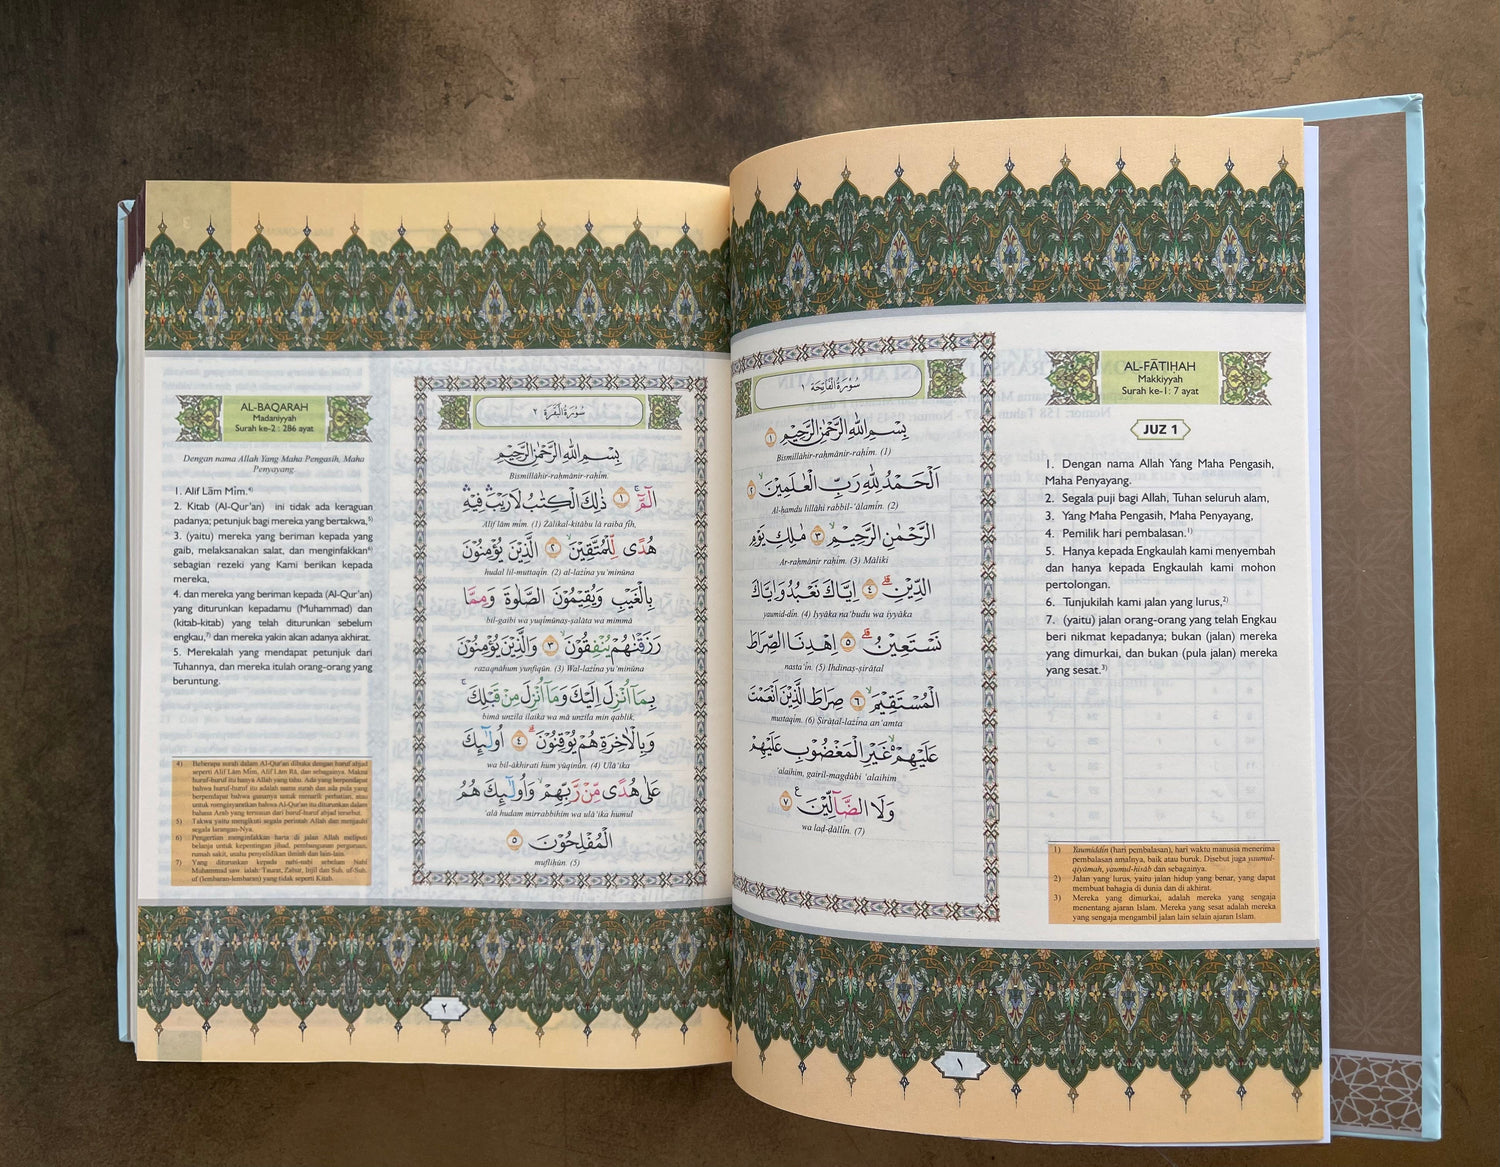 سُوْرَةُ الْفَاتِحَة ١
بِسْمِ اللّٰهِ الرَّحْمٰنِ الرَّحِيْمِ ١
Bismillāhir-raḥmānir-raḥīm. (1)
اَلْحَمْدُ لِلّٰهِ رَبِّ الْعٰلَمِيْنَۙ ٢
Al-ḥamdu lillāhi rabbil-‘ālamīn. (2)
الرَّحْمٰنِ الرَّحِيْمِۙ ٣ مٰلِكِ يَوْمِ
Ar-raḥmānir raḥīm. (3) Māliki
الدِّيْنِۗ ٤ اِيَّاكَ نَعْبُدُ وَاِيَّاكَ
yaumid-dīn. (4) Iyyāka na‘budu wa iyyāka
نَسْتَعِيْنُۗ ٥ اِهْدِنَا الصِّرَاطَ
nasta‘īn. (5) Ihdinaṣ-ṣirāṭal
الْمُسْتَقِيْمَۙ ٦ صِرَاطَ الَّذِيْنَ اَنْعَمْتَ
mustaqīm. (6) Ṣirāṭal-lażīna an‘amta
عَلَيْهِمْ ەۙ غَيْرِ الْمَغْضُوْبِ عَلَيْهِمْ
‘alaihim, gairil-magḍūbi ‘alaihim
وَلَا الضَّاۤلِّيْنَ ࣖ ٧
wa laḍ-ḍāllīn. (7)
AL-FĀTIḤAH
Makkiyyah
Surah ke-1: 7 ayat
JUZ 1
1. Dengan nama Allah Yang Maha Pengasih,
Maha Penyayang.
2. Segala puji bagi Allah, Tuhan seluruh alam,
3. Yang Maha Pengasih, Maha Penyayang,
4. Pemilik hari pembalasan.1)
5. Hanya kepada Engkaulah kami menyembah
dan hanya kepada Engkaulah kami mohon
pertolongan.
6. Tunjukilah kami jalan yang lurus,2)
7. (yaitu) jalan orang-orang yang telah Engkau
beri nikmat kepadanya; bukan (jalan) mereka
yang dimurkai, dan bukan (pula jalan) mereka
yang sesat.3)
1) Yaumiddin (hari pembalasan), hari waktu manusia menerima
pembalasan amalnya, baik atau buruk. Disebut juga yaumul-
qiyāmah, yaumul-ḥisāb dan sebagainya.
2) Jalan yang lurus, yaitu jalan hidup yang benar, yang dapat
membuat bahagia di dunia dan di akhirat.
3) Mereka yang dimurkai, adalah mereka yang sengaja
menentang ajaran Islam. Mereka yang sesat adalah mereka
yang sengaja mengambil jalan lain selain ajaran Islam.
١
سُوْرَةُ الْبَقَرَة ٢
بِسْمِ اللّٰهِ الرَّحْمٰنِ الرَّحِيْمِ
Bismillāhir-raḥmānir-raḥīm.
الۤمّۤۚ ١ ذٰلِكَ الْكِتٰبُ لَا رَيْبَۛ فِيْهِۛ
Alif lām mīm. (1) Żālikal-kitābu lā raiba fīh,
هُدًى لِّلْمُتَّقِيْنَۙ ٢ الَّذِيْنَ يُؤْمِنُوْنَ
hudal lil-muttaqīn. (2) al-lażīna yu'minūna
بِالْغَيْبِ وَيُقِيْمُوْنَ الصَّلٰوةَ وَمِمَّا
bil-gaibi wa yuqīmūnaṣ-ṣalāta wa mimmā
رَزَقْنٰهُمْ يُنْفِقُوْنَۙ ٣ وَالَّذِيْنَ يُؤْمِنُوْنَ
razaqnāhum yunfiqūn. (3) Wal-lażīna yu'minūna
بِمَآ اُنْزِلَ اِلَيْكَ وَمَآ اُنْزِلَ مِنْ قَبْلِكَۚ
bimā unzila ilaika wa mā unzila min qablik,
وَبِالْاٰخِرَةِ هُمْ يُوْقِنُوْنَۗ ٤ اُولٰۤىِٕكَ
wa bil-ākhirati hum yūqinūn. (4) Ulā'ika
عَلٰى هُدًى مِّنْ رَّبِّهِمْۙ وَاُولٰۤىِٕكَ هُمُ
‘alā hudam mirrabbihim wa ulā'ika humul
الْمُفْلِحُوْنَ ٥
mufliḥūn. (5)
AL-BAQARAH
Madaniyyah
Surah ke-2 : 286 ayat
Dengan nama Allah Yang Maha Pengasih, Maha
Penyayang.
1. Alif Lām Mīm.4)
2. Kitab (Al-Qur'an) ini tidak ada keraguan
padanya; petunjuk bagi mereka yang bertakwa,5)
3. (yaitu) mereka yang beriman kepada yang
gaib, melaksanakan salat, dan menginfakkan6)
sebagian rezeki yang Kami berikan kepada
mereka,
4. dan mereka yang beriman kepada (Al-Qur'an)
yang diturunkan kepadamu (Muhammad) dan
(kitab-kitab) yang telah diturunkan sebelum
engkau,7) dan mereka yakin akan adanya akhirat.
5. Merekalah yang mendapat petunjuk dari
Tuhannya, dan mereka itulah orang-orang yang
beruntung.
4) Beberapa surah dalam Al-Qur'an dibuka dengan huruf abjad
seperti Alif Lām Mīm, Alif Lām Rā, dan sebagainya. Makna
huruf-huruf itu hanya Allah yang tahu. Ada yang berpendapat
bahwa huruf-huruf itu adalah nama surah dan ada pula yang
berpendapat bahwa gunanya untuk menarik perhatian, atau
untuk mengisyaratkan bahwa Al-Qur'an itu diturunkan dalam
bahasa Arab yang tersusun dari huruf-huruf abjad tersebut.
5) Takwa yaitu mengikuti segala perintah Allah dan menjauhi
segala larangan-Nya.
6) Pengertian menginfakkan harta di jalan Allah meliputi
belanja untuk kepentingan jihad, pembangunan perguruan,
rumah sakit, usaha penyelidikan ilmiah dan lain-lain.
7) Yang diturunkan kepada nabi-nabi sebelum Nabi
Muhammad saw. ialah: Taurat, Zabur, Injil dan Suḥ. uf-Suḥ.
uf (lembaran-lembaran) yang tidak seperti Kitab.
٢